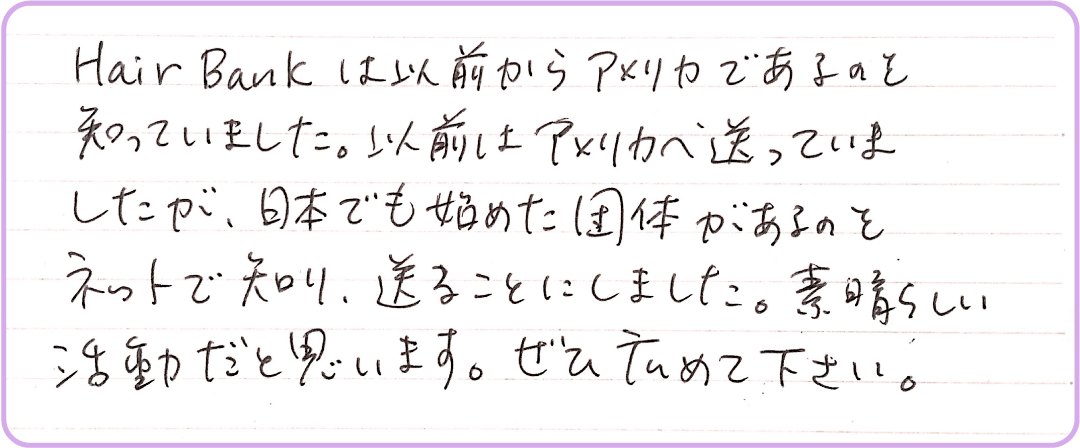 Hair Bankは以前からアメリカであるのを
知っていました。以前はアメリカへ送っていま
したが、日本でも始めた団体があるのを
ネットで知り、送ることにしました。素晴らしい
活動だと思います。ぜひ広めて下さい。